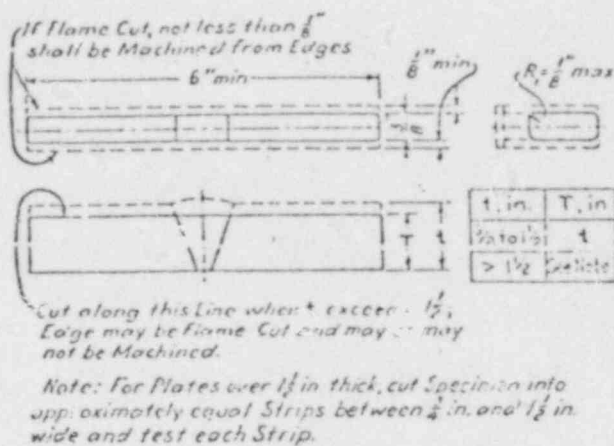 If Flame Cut, not less than 1/8"
shall be Machined from Edges
6" min
1/8" min
R, = 1/8" max
T
t
t, in. T, in
t
> 1½ See Note
Cut along this Line when t exceeds 1½,
Edge may be Flame Cut and may or may
not be Machined.
Note: For Plates over 1½ in thick, cut Specimen into
approximately equal Strips between ¾ in. and 1½ in.
wide and test each Strip.